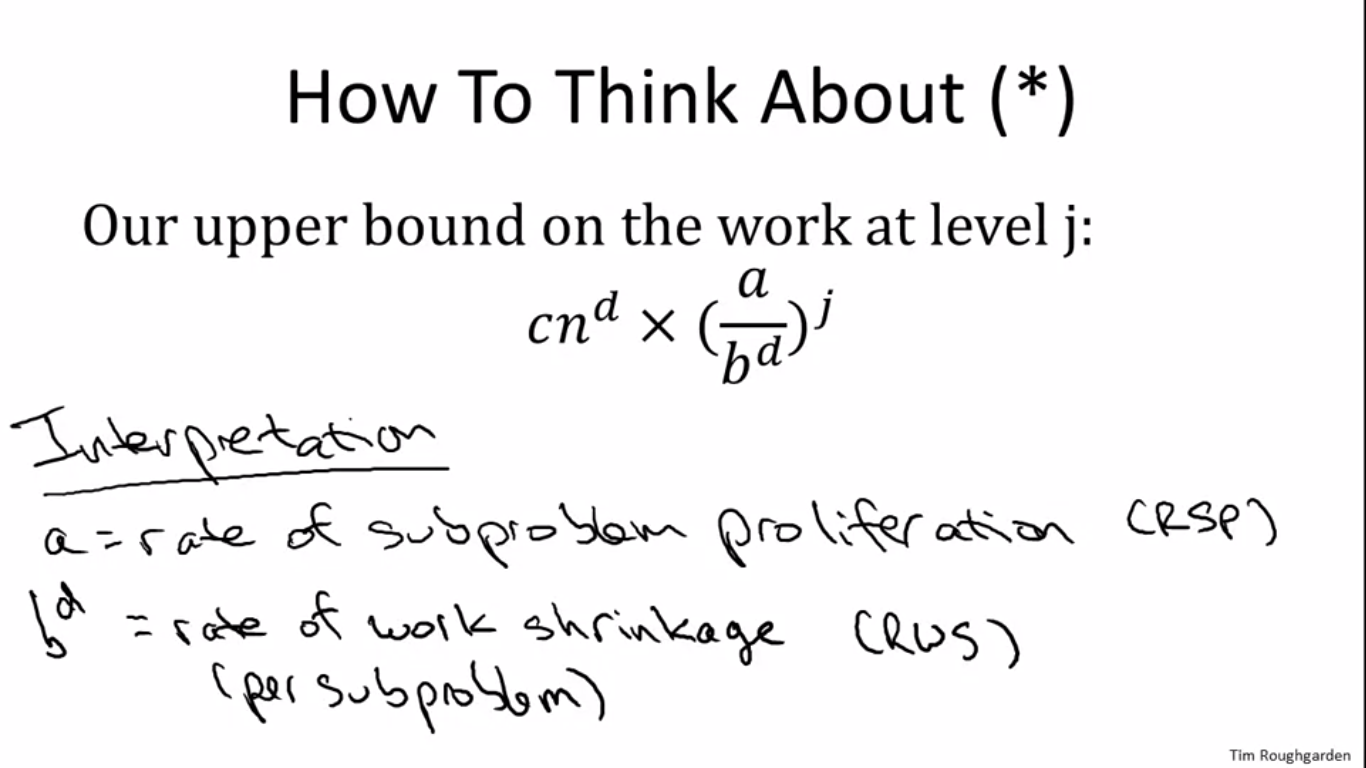 How To Think About (*)
Our upper bound on the work at level j:
cn^d × (a/b^d)^j
Interpretation
a = rate of subproblem proliferation (RSP)
b^d = rate of work shrinkage (RWS)
(per subproblem)
Tim Roughgarden